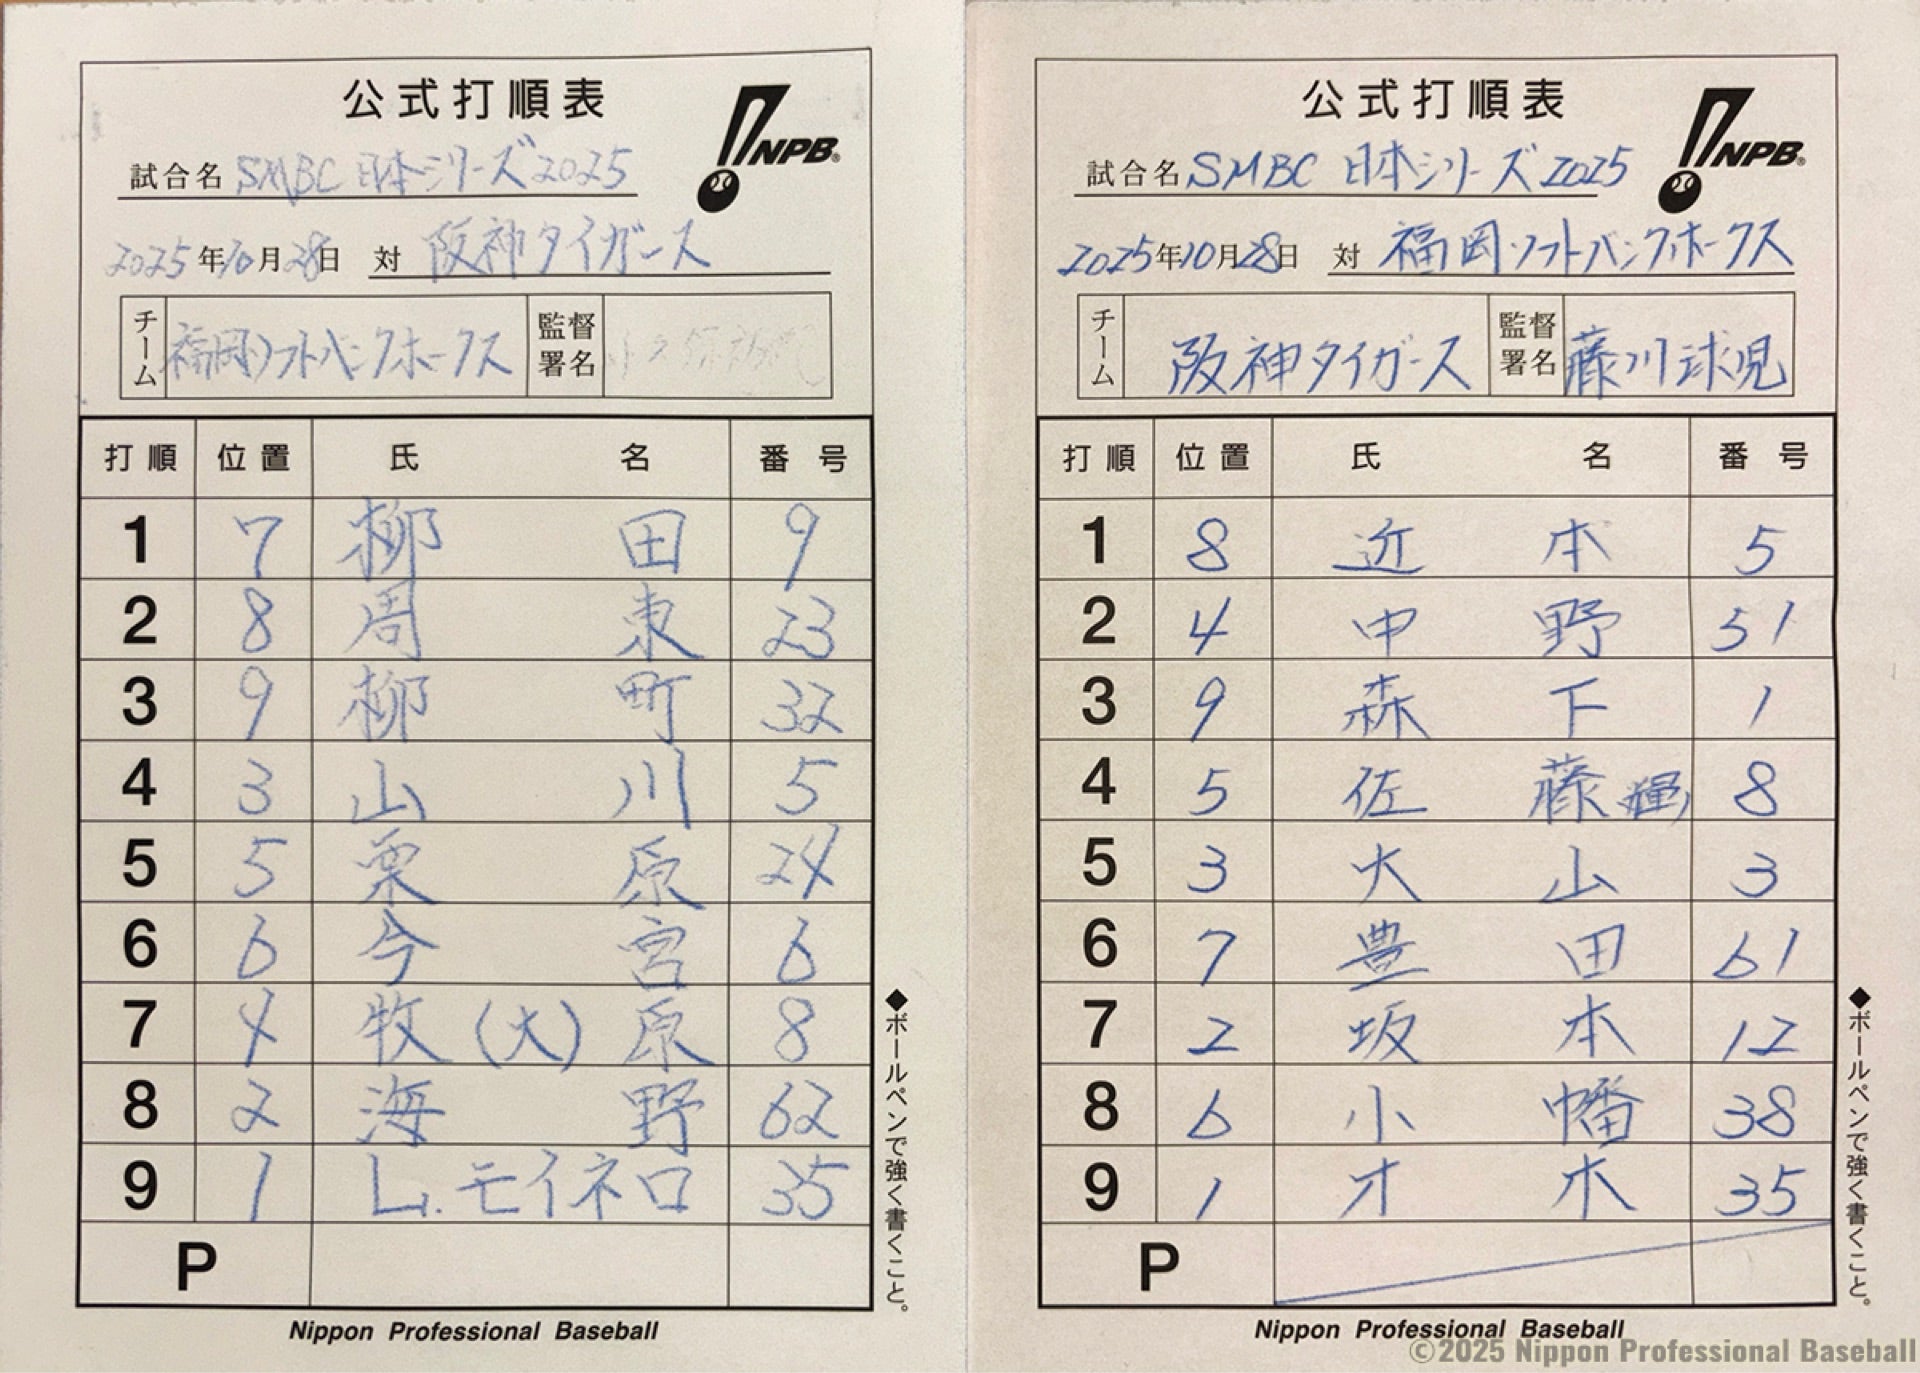 公式打順表
NPB
試合名 SMBC 日本シリーズ2025
2025年10月28日 対 阪神タイガース
チーム 福岡ソフトバンクホークス 監督署名
打順 位置 氏名 番号
1 7 柳田 9
2 8 周東 23
3 9 柳町 32
4 3 山川 5
5 5 栗原 24
6 6 今宮 6
7 4 牧(大)原 8
8 2 海野 62
9 1 L.モイネロ 35
P
◆ボールペンで強く書くこと。
Nippon Professional Baseball
公式打順表
NPB
試合名 SMBC 日本シリーズ2025
2025年10月28日 対 福岡ソフトバンクホークス
チーム 阪神タイガース 監督署名 藤川球児
打順 位置 氏名 番号
1 8 近本 5
2 4 中野 51
3 9 森下 1
4 5 佐藤輝 8
5 3 大山 3
6 7 豊田 61
7 2 坂本 12
8 6 小幡 38
9 1 才木 35
P
◆ボールペンで強く書くこと。
Nippon Professional Baseball
©2025 Nippon Professional Baseball